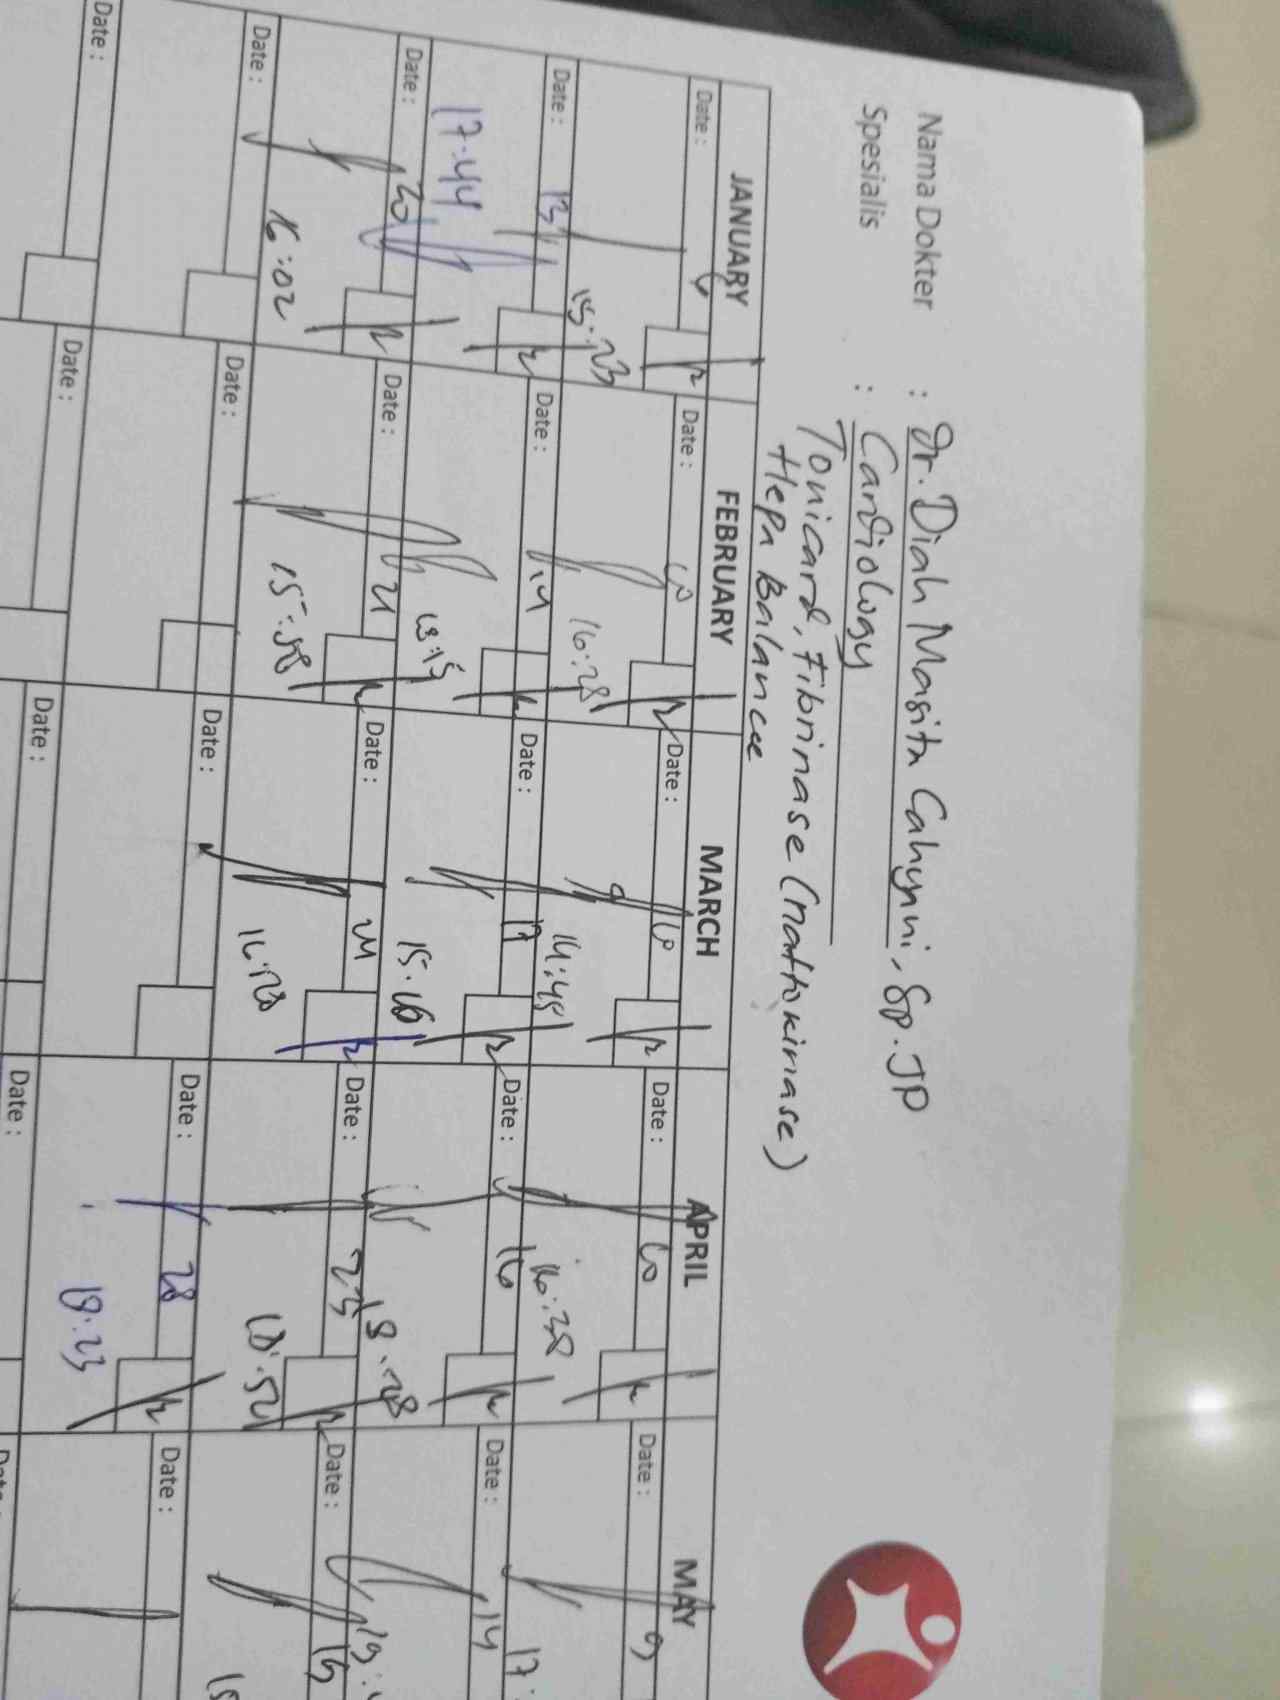 Nama Dokter : Dr. Diah Masita Cahyani, Sp. JP
Spesialis : Cardiology
Tonicard, Fibrinase (nattokinase)
Hepa Balance
JANUARY FEBRUARY MARCH APRIL MAY
Date: 6 Date: Date: 10 Date: 10 Date: 9
15:23 16:28 14:45 16:38 17.
Date: 13 Date: 14 Date: 17 Date: 16 Date: 14
17.44 18:15 15.16 18.48 19.
Date: 20 Date: 21 Date: 24 Date: 23 Date: 15
16:02 15:58 16:20 18:52
Date: Date: Date: Date: 28 Date:
18:23
Date: Date: Date: Date: